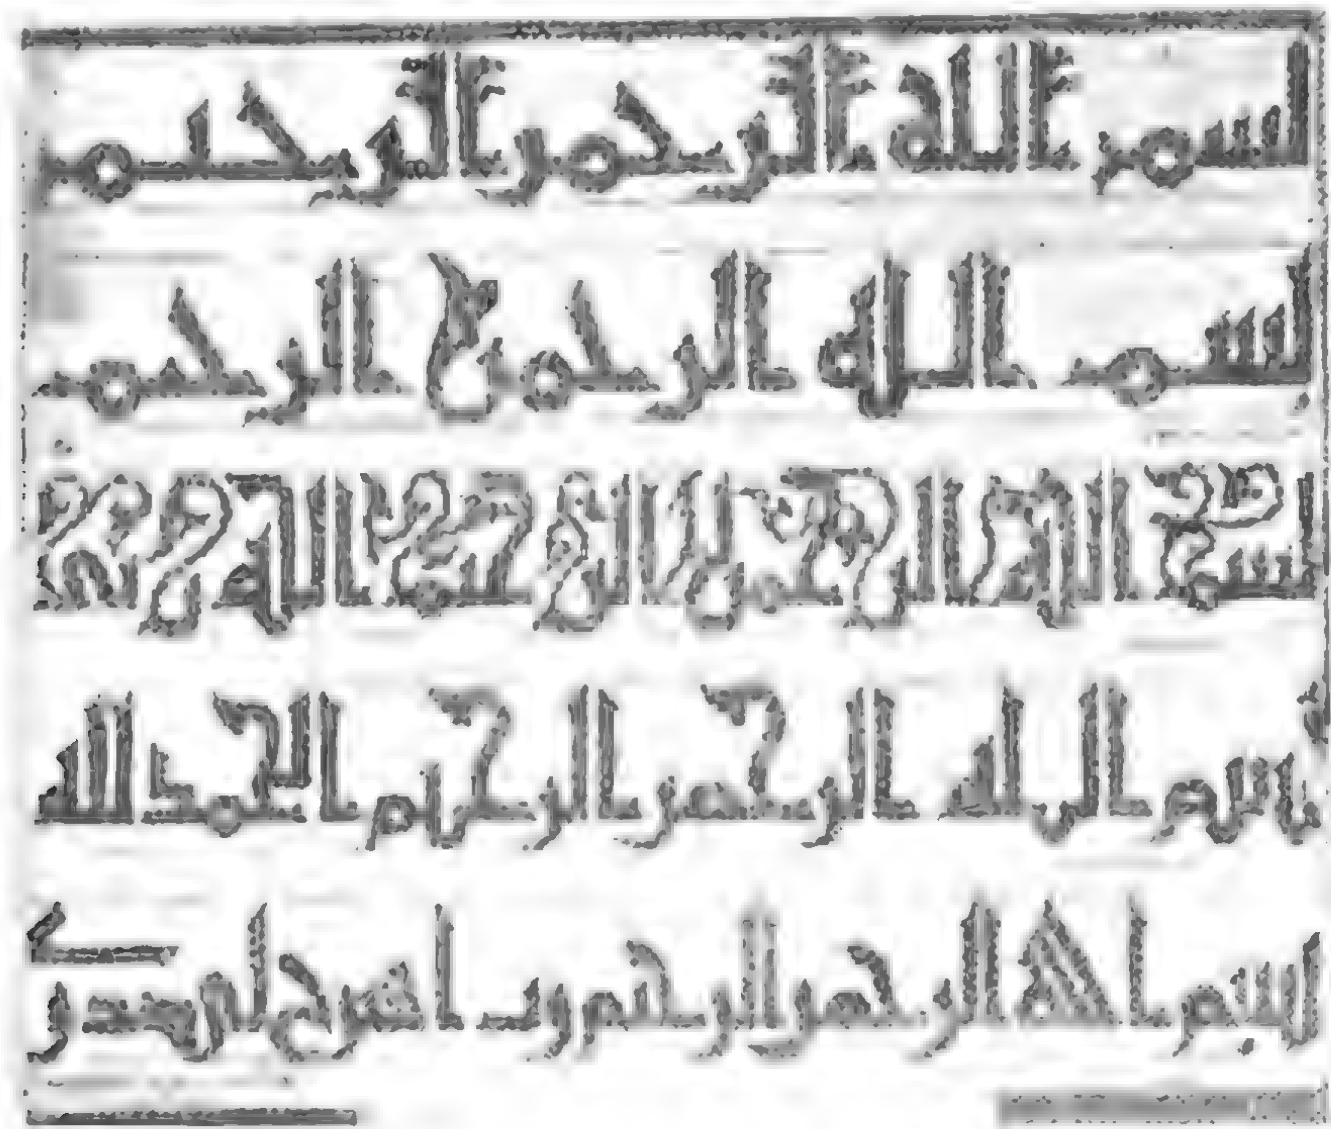 بسم الله الرحمن الرحيم
بسم الله الرحمن الرحيم
بسم الله الرحمن الرحيم
بسم الله الرحمن الرحيم الحمد لله
بسم الله الرحمن الرحيم